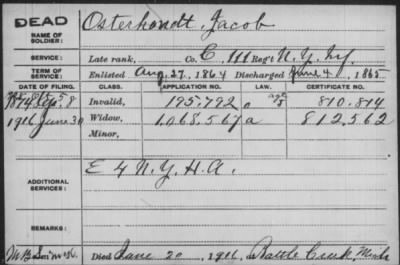 DEAD
NAME OF SOLDIER:
Osterhoudt, Jacob
SERVICE:
Late rank, Co. C, 111 Reg't N.Y. Inf.
TERM OF SERVICE:
Enlisted Aug 27, 1864 Discharged June 4, 1865
DATE OF FILING. CLASS. APPLICATION NO. LAW. CERTIFICATE NO.
Invalid, 195,792 810,814
1916 June 30 Widow, 1,068,567 a 812,562
Minor,
ADDITIONAL SERVICES:
E 4 N.Y. H.A.
REMARKS:
Died June 20, 1916, Battle Creek, Mich